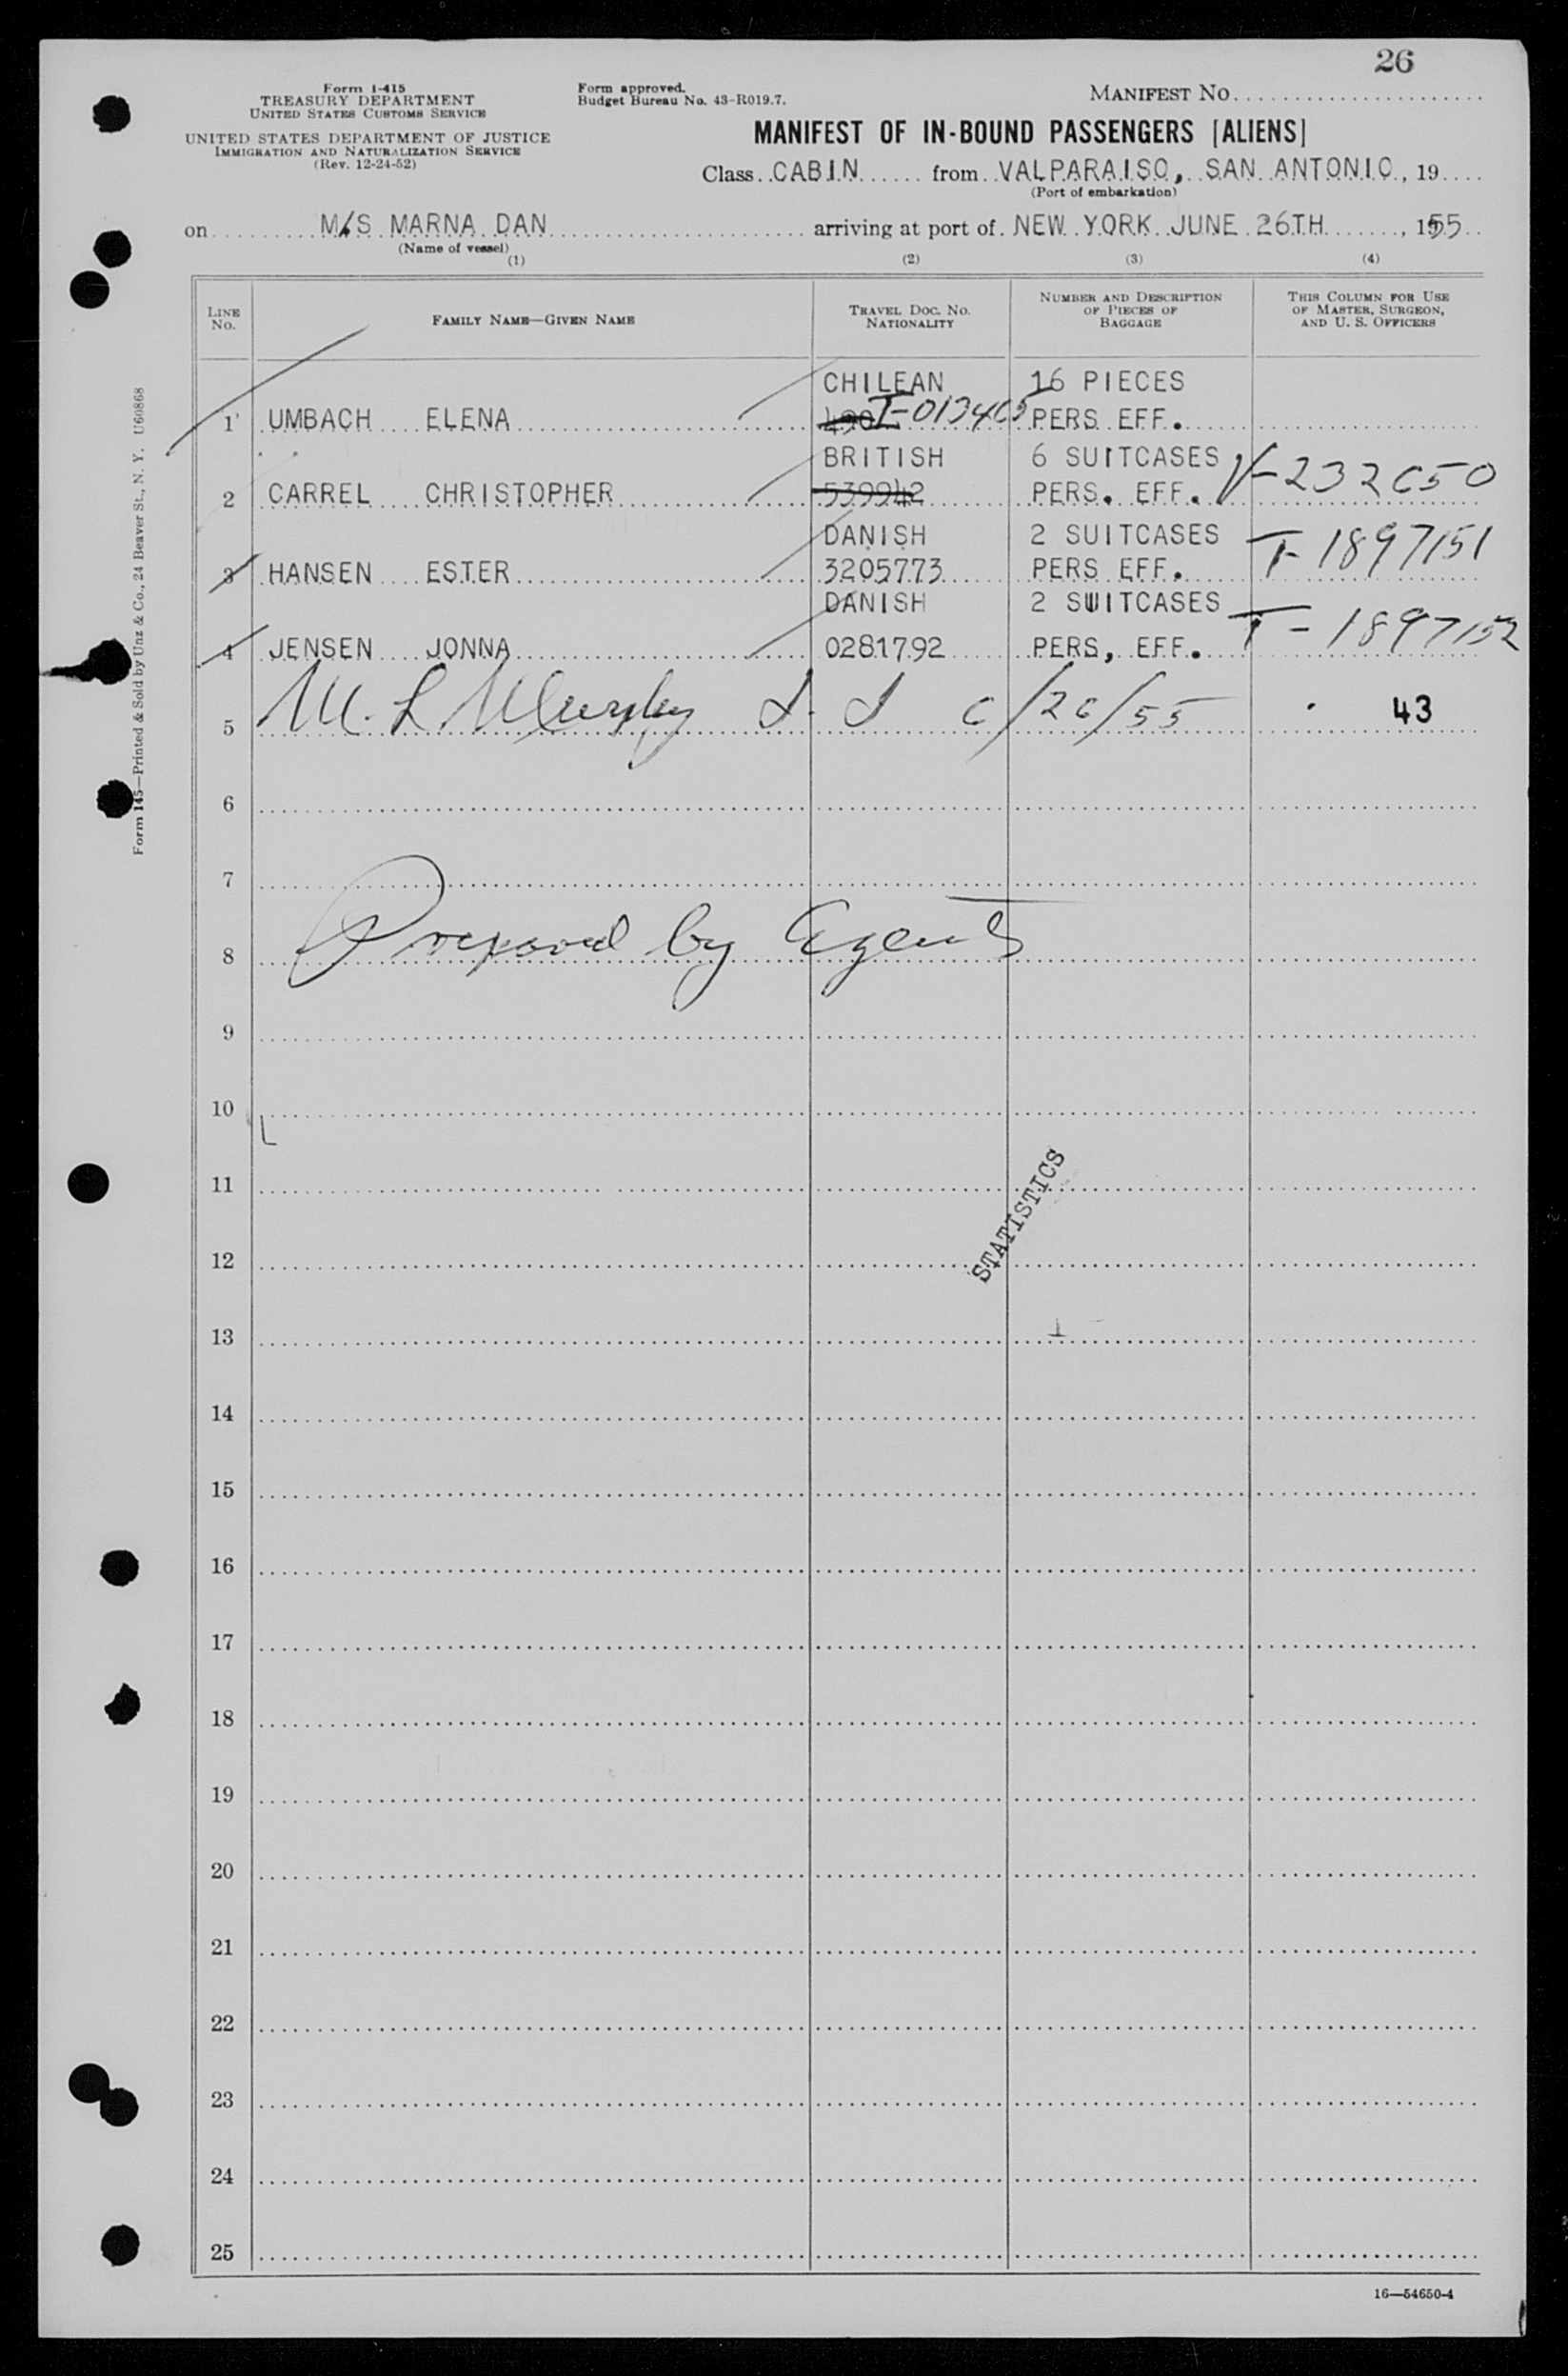 26
Form I-415
TREASURY DEPARTMENT
UNITED STATES CUSTOMS SERVICE
UNITED STATES DEPARTMENT OF JUSTICE
IMMIGRATION AND NATURALIZATION SERVICE
(Rev. 12-24-52)
Form approved.
Budget Bureau No. 43-R019.7.
MANIFEST NO.
MANIFEST OF IN-BOUND PASSENGERS [ALIENS]
Class CABIN from VALPARAISO, SAN ANTONIO, 19
(Port of embarkation)
on M/S MARNA DAN arriving at port of NEW YORK JUNE 26TH, 1955
(Name of vessel)
(1) (2) (3) (4)
LINE NO. FAMILY NAME—GIVEN NAME TRAVEL DOC. NO. NATIONALITY NUMBER AND DESCRIPTION OF PIECES OF BAGGAGE THIS COLUMN FOR USE OF MASTER, SURGEON, AND U. S. OFFICERS
CHILEAN 16 PIECES
1 UMBACH ELENA T-013465 PERS EFF.
BRITISH 6 SUITCASES
2 CARREL CHRISTOPHER 539942 PERS. EFF. V-232650
DANISH 2 SUITCASES
3 HANSEN ESTER 3205773 PERS EFF. T-1897151
DANISH 2 SUITCASES
4 JENSEN JONNA 0281792 PERS, EFF. T-1897152
5 M. L. Murphy 6/26/55 43
6
7
8 Prepared by Agents
9
10
11
STATISTICS
12
13
14
15
16
17
18
19
20
21
22
23
24
25
16—54650-4
Form 145—Printed & Sold by Unz & Co., 24 Beaver St., N. Y. U60868